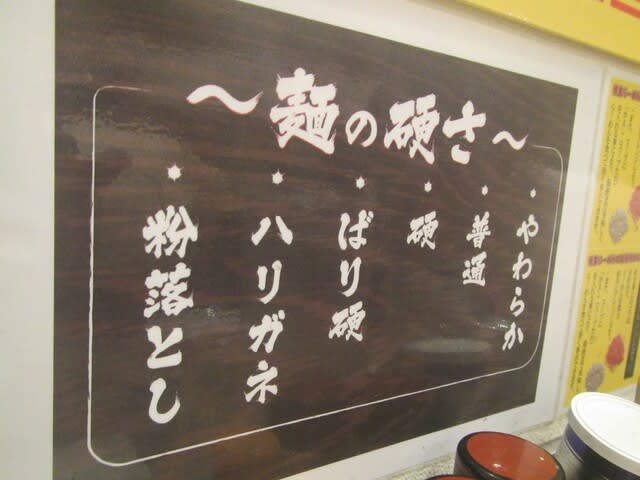 ～麺の硬さ～
・やわらか
・普通
・硬
・ばり硬
・ハリガネ
・粉落とし